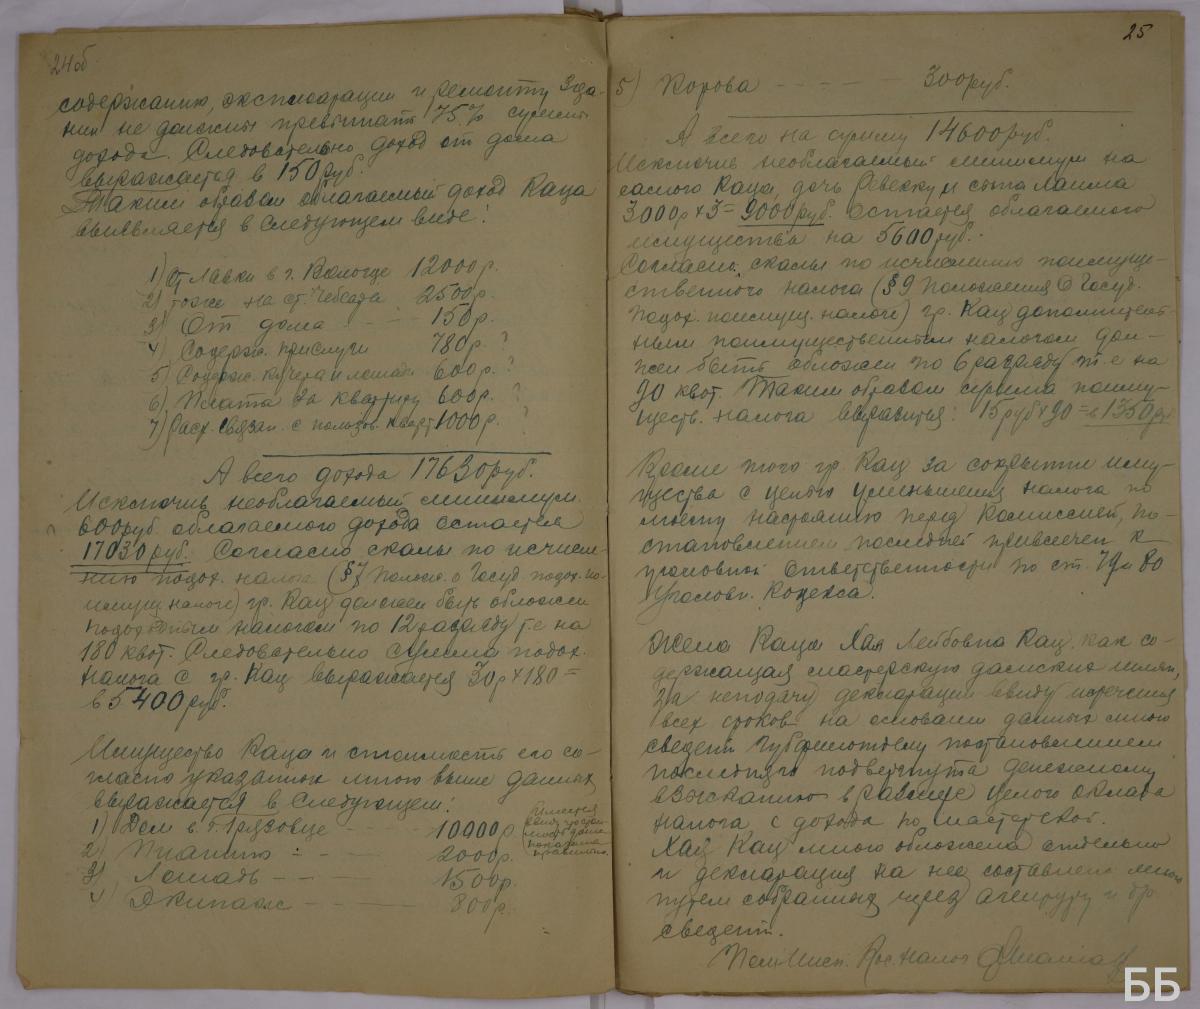 24об
содержанию, эксплоатации и ремонту зда-
ния не должны превышать 75% суммы
дохода. Следовательно доход от дома
выражается в 150 руб.
Таким образом облагаемый доход Каца
выявляется в следующем виде:
1) От лавки в г. Вологде 12000 р.
2) тоже на ст. Чебсара 2500 р.
3) От дома - - - - 150 р.
4) Содерж. прислуги 780 р. ?
5) Содерж. кучера и лошади 600 р. ?
6) Плата за квартиру 600 р. ?
7) Расх. связан. с пользов. кварт 1000 р. ?
А всего дохода 17630 руб.
Исключив необлагаемый минимум
600 руб. облагаемого дохода остается
17030 руб. Согласно скалы по исчисле-
нию подох. налога (§ 7 Полож. о Госуд. подох. по-
имущ. налоге) гр. Кац должен быть обложен
подоходным налогом по 12 разряду т.е на
180 квот. Следовательно сумма подох.
налога с гр. Кац выражается 30 р × 180 =
в 5400 руб.
Имущество Каца и стоимость его со-
гласно указанных мною выше данных
выражается в следующем:
1) Дом в г. Грязовце - - - 10000 р.
2) Пианино - - - 2000 р.
3) Лошадь - - - - 1500 р.
4) Экипаж - - - - - 800 р.
25
5) Корова - - - - 300 руб.
А всего на сумму 14600 руб.
Исключив необлагаемый минимум на
самого Каца, дочь Ревекку и сына Хаима
3000 р × 3 = 9000 руб. Остается облагаемого
имущества на 5600 руб.
Согласно скалы по исчислению поимуще-
ственного налога (§ 9 Положения О Госуд.
Подох. поимущ. налоге) гр. Кац дополнитель-
ным поимущественным налогом дол-
жен быть обложен по 6 разряду т.е на
90 квот. Таким образом сумма поиму-
ществ. налога выразится: 15 руб × 90 = в 1350 р.
Кроме того гр. Кац за сокрытие иму-
щества с целью уменьшения налога по
моему настоянию перед Комиссией, по-
становлением последней привлечен к
уголовной ответственности по ст. 79 и 80
Уголовн. Кодекса.
Жена Каца Хая Лейбовна Кац, как со-
держащая мастерскую дамских шляп,
за неподачу декларации ввиду истечения
всех сроков на основании данных мною
сведен. Губфинотделу постановлением
последнего подвергнута денежному
взысканию в размере целого оклада
налога с дохода по мастерской.
Хая Кац мною обложена отдельно
и декларация на нее составлена мною
путем собранных через агентуру и др
сведен.
Инсп. Кос. налог
ББ